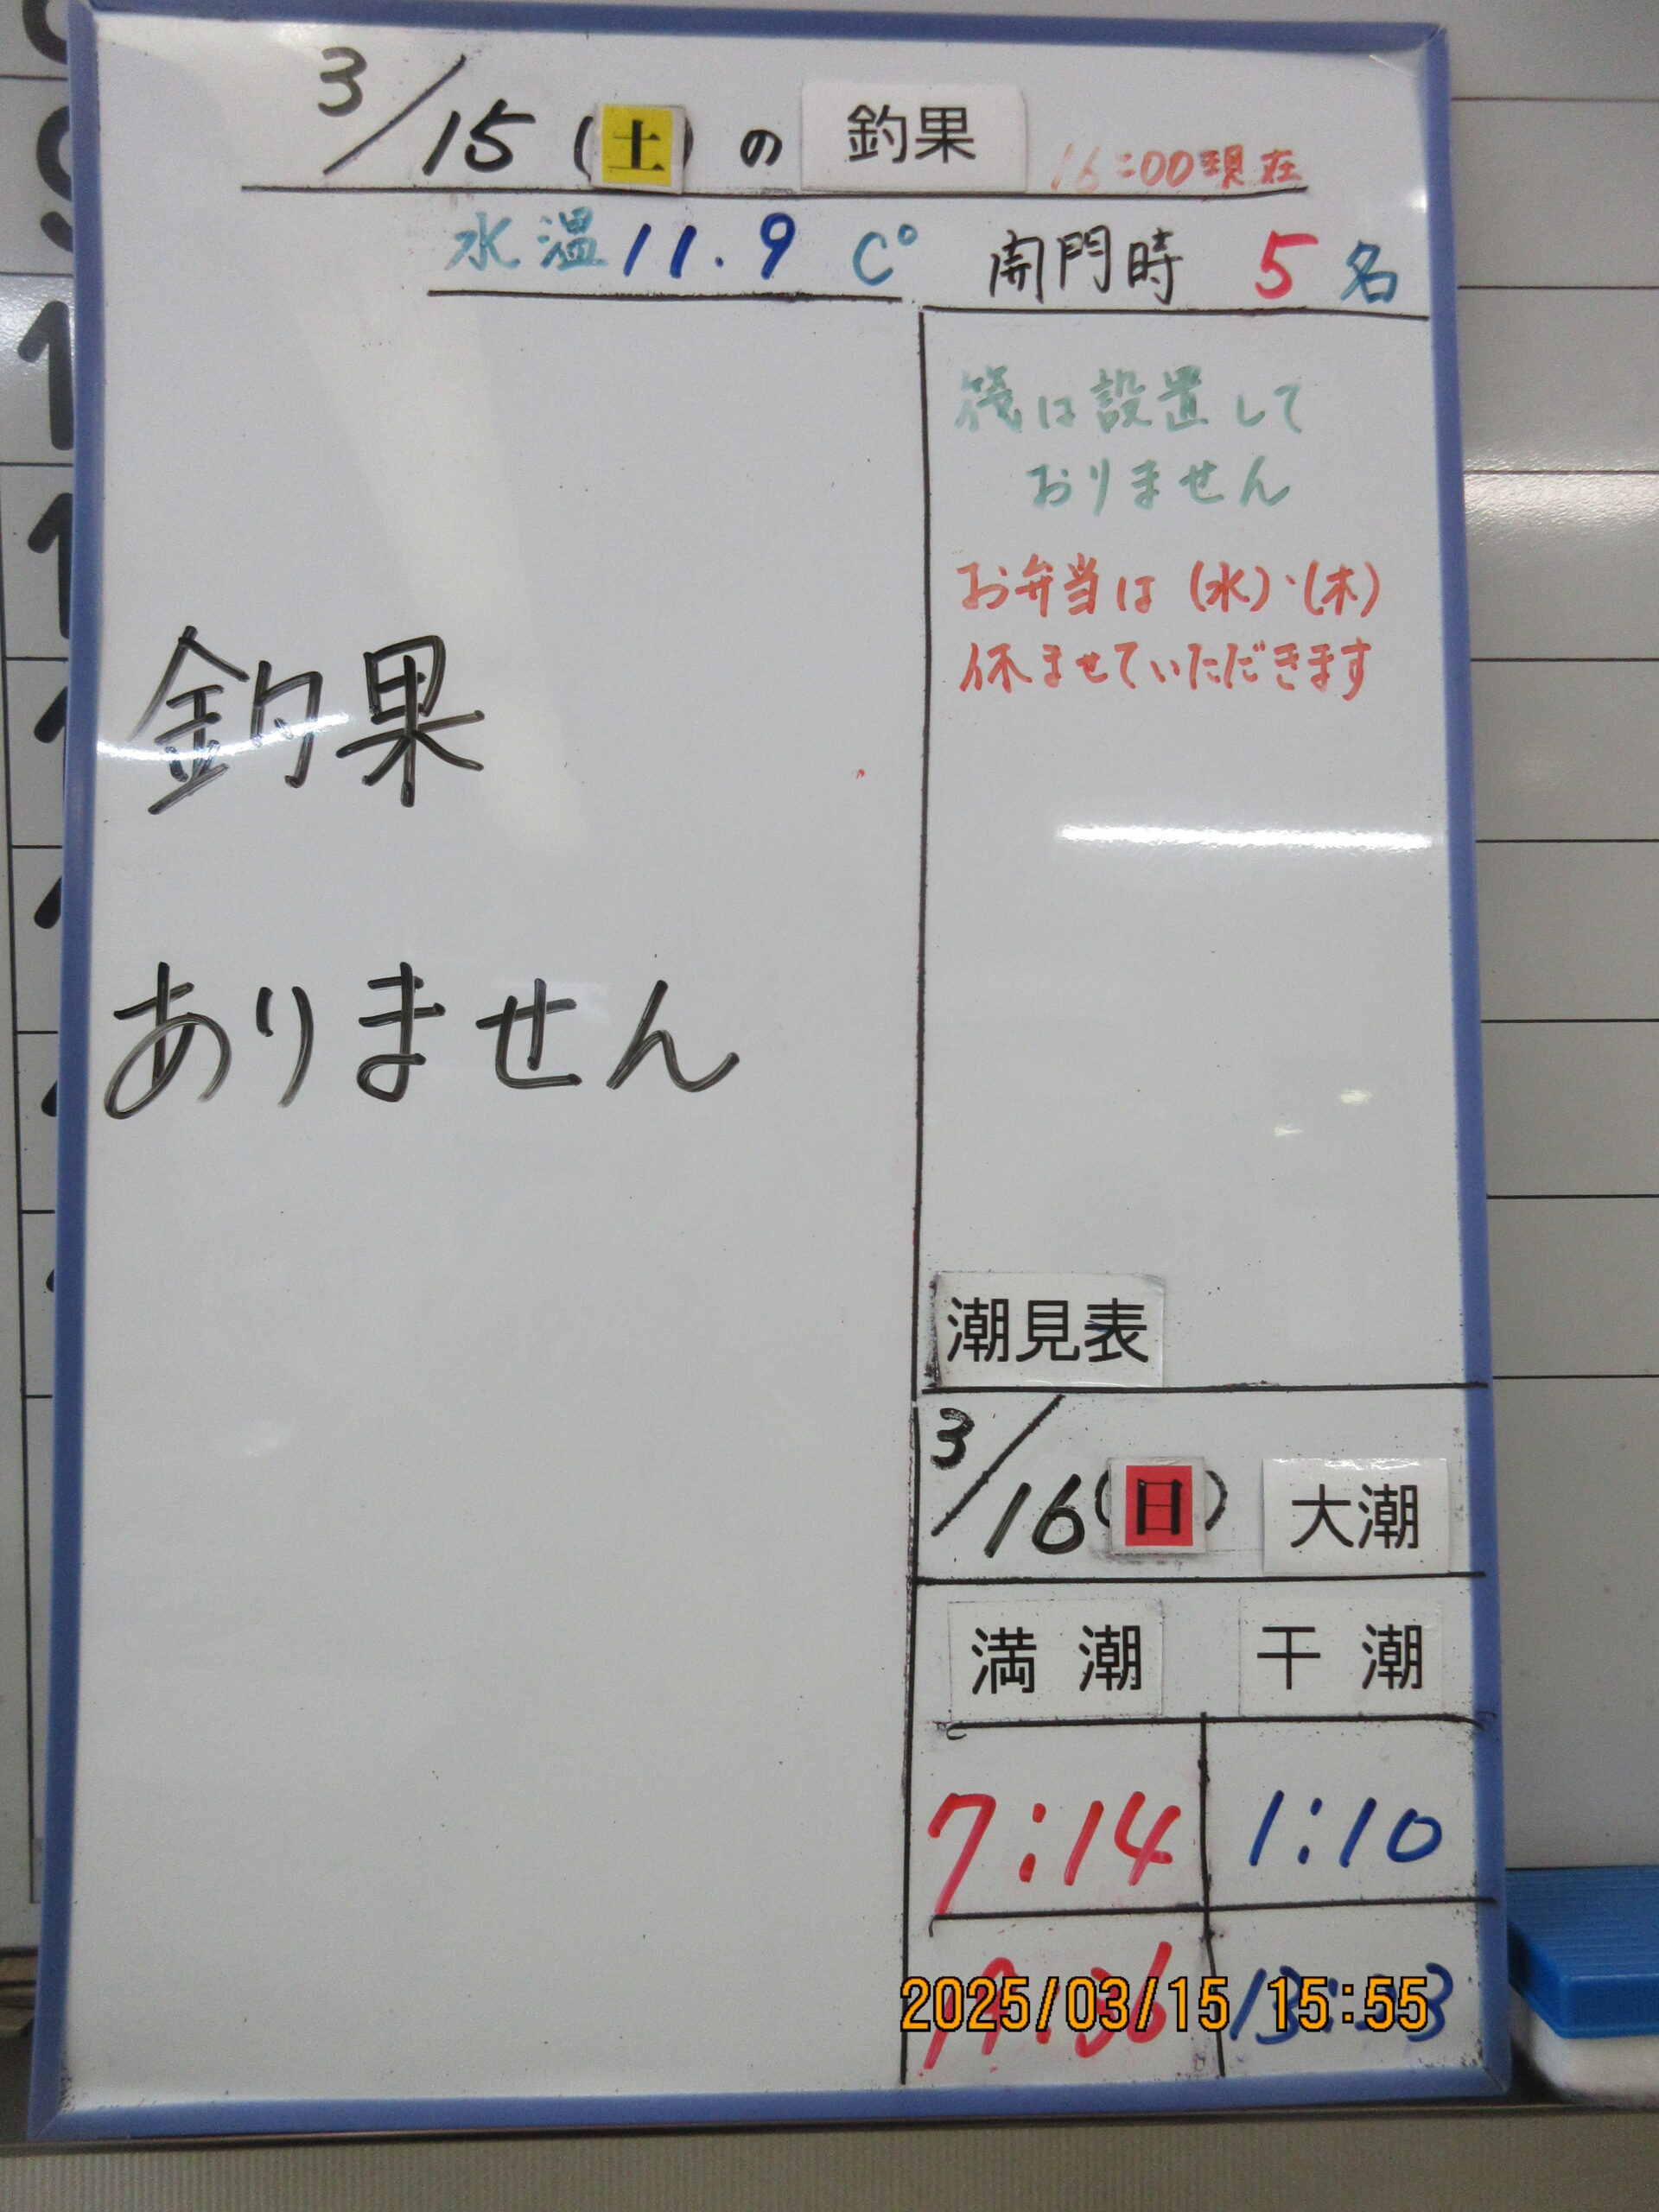 3/15(土)の 釣果 16:00現在
水温 11.9 C° 開門時 5名
筏は設置して
おりません
お弁当は(水)・(木)
休ませていただきます
釣果
ありません
潮見表
3/16(日) 大潮
満潮 干潮
7:14 1:10
2025/03/15 15:55